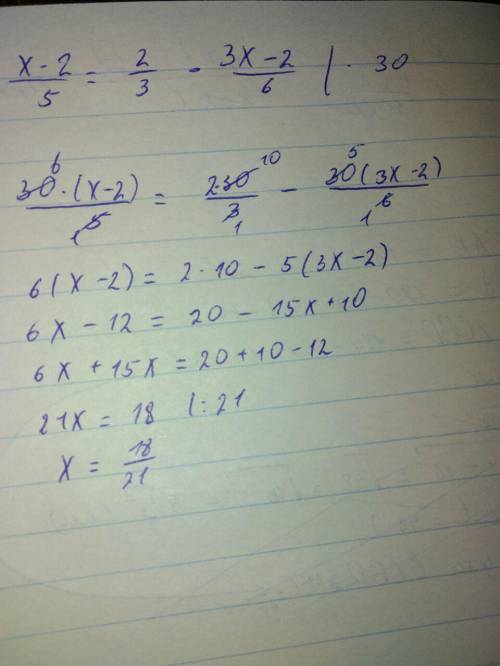 x-2/5 = 2/3 - 3x-2/6 | · 30
30·(x-2)/5 = 2·30/3 - 30(3x-2)/6
6(x-2) = 2·10 - 5(3x-2)
6x - 12 = 20 - 15x + 10
6x + 15x = 20 + 10 - 12
21x = 18 |:21
x = 18/21